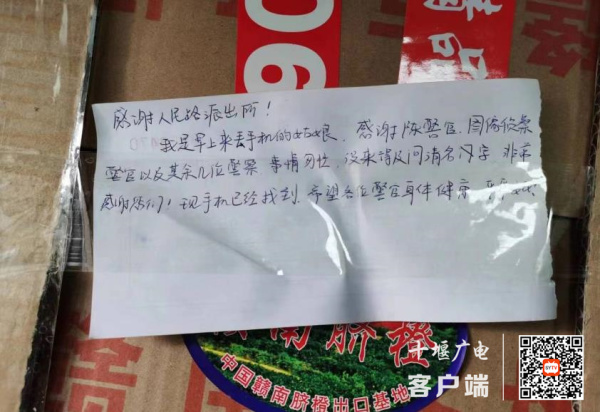 06
感谢人民路派出所！
我是早上来丢手机的姑娘，感谢陈警官、图像侦察
警官以及其余几位警察，事情匆忙，没来得及问清名字，非常
感谢你们！现手机已经找到，希望各位警官身体健康
赣南脐橙
中国赣南脐橙出口基地
十堰广电
客户端
SYTV